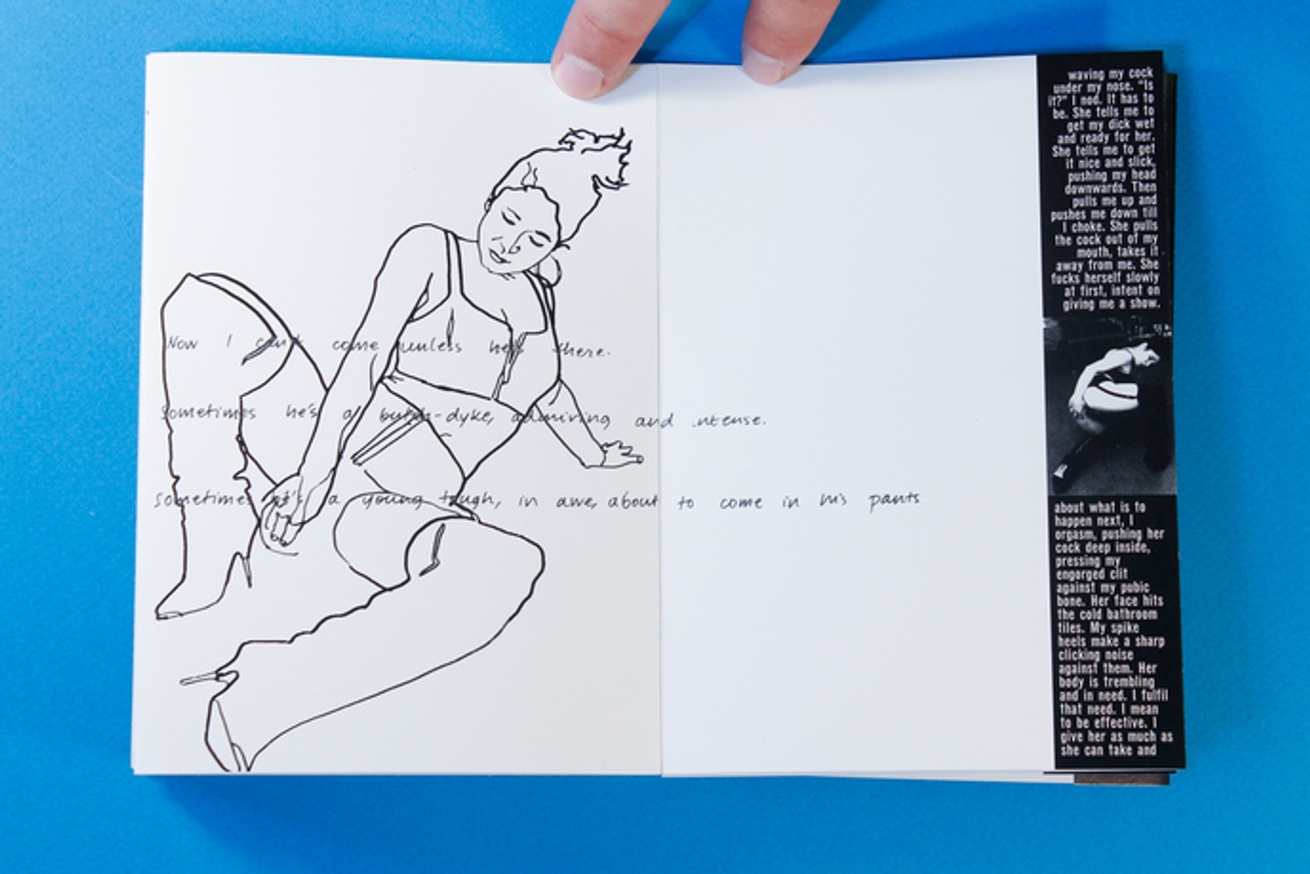 Now I can't come unless he's there.
Sometimes he's a butch-dyke, admiring and intense.
Sometimes he's a young tough, in awe, about to come in his pants
waving my cock
under my nose. "Is
it?" I nod. It has to
be. She tells me to
get my dick wet
and ready for her.
She tells me to get
it nice and slick,
pushing my head
downwards. Then
pulls me up and
pushes me down till
I choke. She pulls
the cock out of my
mouth, takes it
away from me. She
fucks herself slowly
at first, intent on
giving me a show.
about what is to
happen next, I
orgasm, pushing her
cock deep inside,
pressing my
engorged clit
against my pubic
bone. Her face hits
the cold bathroom
tiles. My spike
heels make a sharp
clicking noise
against them. Her
body is trembling
and in need. I fulfil
that need. I mean
to be effective. I
give her as much as
she can take and